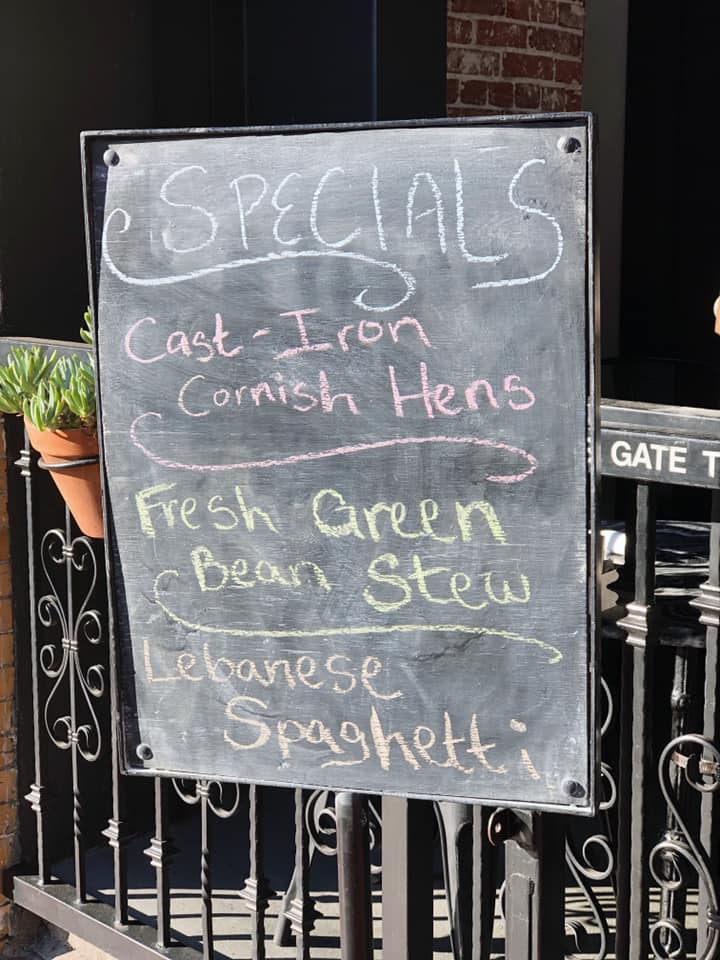 SPECIALS
Cast-Iron
Cornish Hens
Fresh Green
Bean Stew
Lebanese
Spaghetti
GATE T